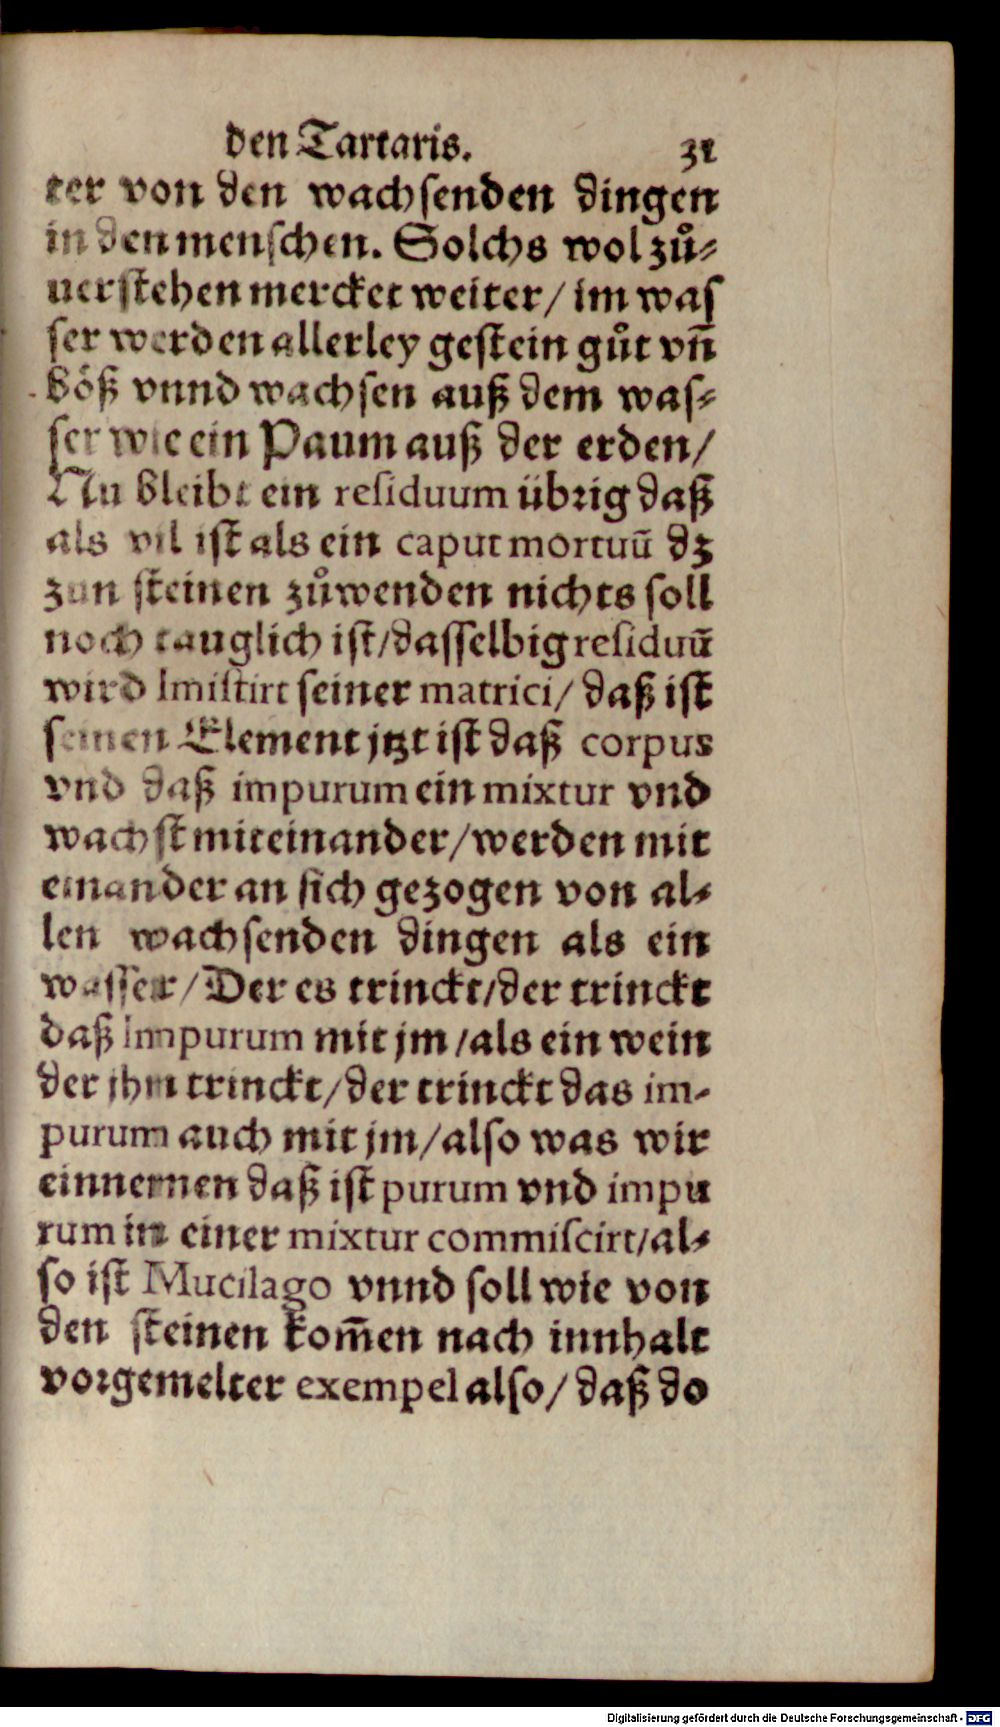 den Tartaris. 31
ter von den wachsenden dingen
in den menschen. Solchs wol zuͦ⸗
uerstehen mercket weiter/ im was
ser werden allerley gestein guͦt vn̄
böß vnnd wachsen auß dem was⸗
ser wie ein Paum auß der erden/
Nu bleibt ein residuum übrig daß
als vil ist als ein caput mortuū dz
zun steinen zuͦwenden nichts soll
noch tauglich ist/dasselbig residuū
wird Imistirt seiner matrici/ daß ist
seinen Element jtzt ist daß corpus
vnd daß impurum ein mixtur vnd
wachst miteinander/werden mit
einander an sich gezogen von al⸗
len wachsenden dingen als ein
wasser/Der es trinckt/der trinckt
daß Impurum mit jm/als ein wein
der jhn trinckt/der trinckt das im-
purum auch mit jm/also was wir
einnemen daß ist purum vnd impu
rum in einer mixtur commiscirt/al⸗
so ist Mucilago vnnd soll wie von
den steinen kom̄en nach innhalt
vorgemelter exempel also/ daß do
Digitalisierung gefördert durch die Deutsche Forschungsgemeinschaft - DFG